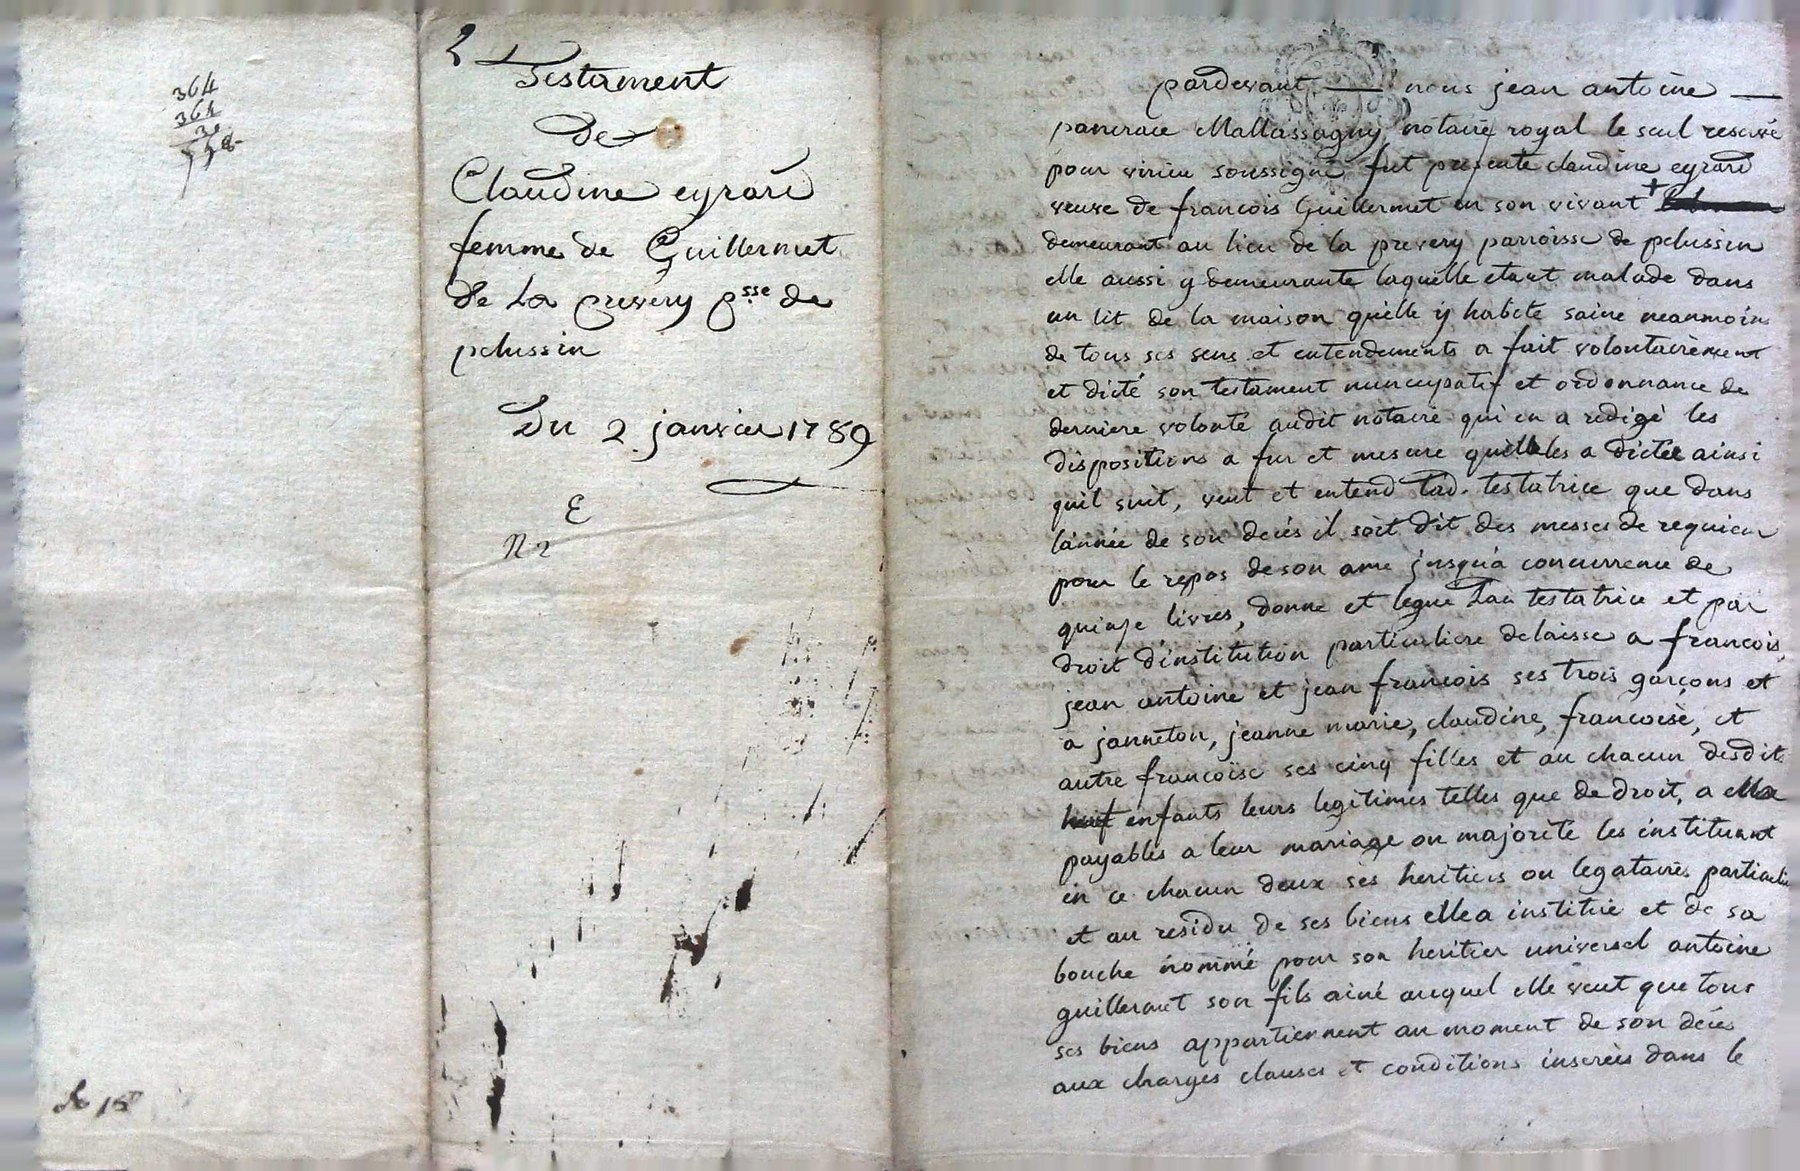 364
364
30
558
2
Testament
de
Claudine eyrard
femme de Guillermet
de La prevery p.sse de
pelussin
Du 2 janvier 1789
E
N 2
pardevant nous jean antoine
pancrace Mallassagny notaire royal le seul reservé
pour virieu soussigné fut presente claudine eyrard
veuve de francois Guillermet en son vivant +
demeurant au lieu de la prevery parroisse de pelussin
elle aussi y demeurante laquelle etant malade dans
un lit de la maison quelle y habite saine neanmoins
de tous ses sens et entendements a fait volontairement
et dicté son testament nuncupatif et ordonnance de
derniere volonté audit notaire qui en a redigé les
dispositions a fur et mesure quelle les a dictée ainsi
quil suit, veut et entend lad. testatrice que dans
lannée de son décés il soit dit des messes de requiem
pour le repos de son ame jusqua concurrence de
quinze livres, donne et legue Lad testatrice et par
droit dinstitution particuliere delaisse a francois,
jean antoine et jean francois ses trois garçons et
a janneton, jeanne marie, claudine, francoise, et
autre francoise ses cinq filles et au chacun desdits
huit enfants leurs legitimes telles que de droit, a elle
payables a leur mariage ou majorité les instituant
en ce chacun deux ses heritiers ou legataires particuli
et au residu de ses biens elle a institué et de sa
bouche nommé pour son heritier universel antoine
guillermet son fils ainé auquel elle veut que tous
ses biens appartiennent au moment de son décés
aux charges clauses et conditions inserées dans le